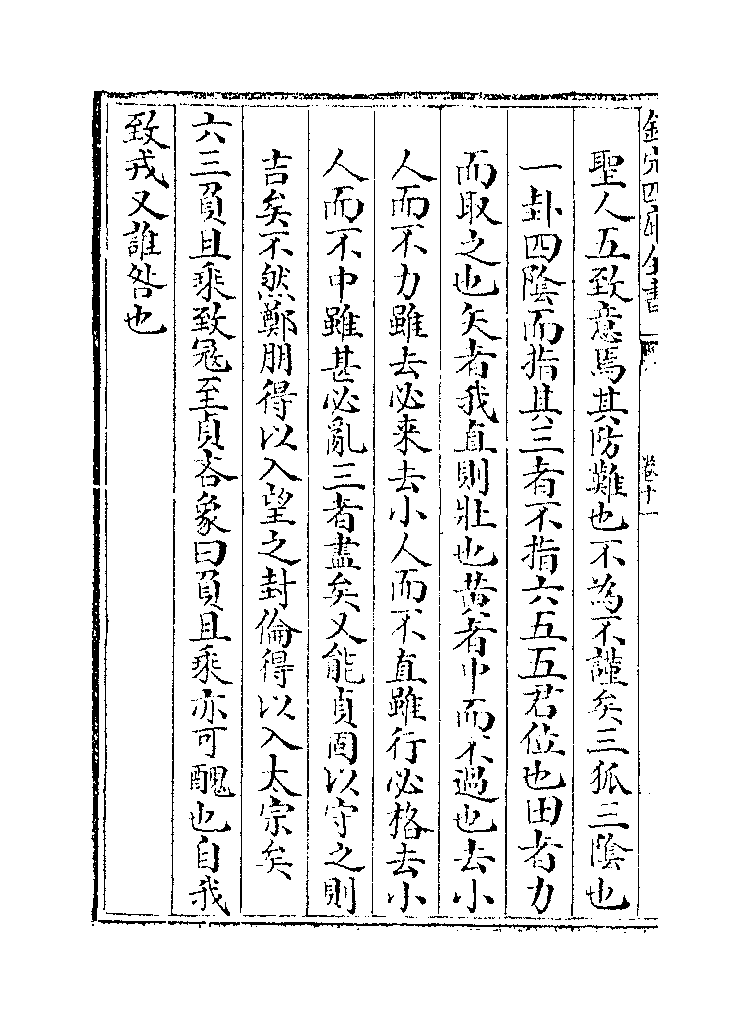 欽定四庫全書
卷十一
聖人五致意焉其防難也不為不謹矣三狐三陰也
一卦四陰而指其三者不指六五五君位也田者力
而取之也矢者我直則壯也黄者中而不過也去小
人而不力雖去必来去小人而不直雖行必格去小
人而不中雖甚必亂三者盡矣又能貞固以守之則
吉矣不然鄭朋得以入望之封倫得以入太宗矣
六三負且乘致冦至貞吝象曰負且乘亦可醜也自我
致戎又誰咎也